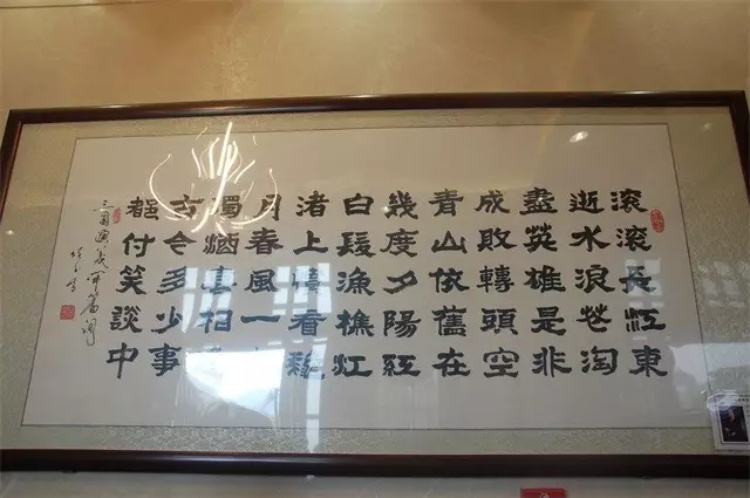 滚滚長江東
逝水浪花淘
盡英雄是非
成敗轉頭空
青山依舊在
幾度夕陽紅
白髮漁樵江
渚上慣看秌
月春風一
濁酒喜相
古今多少事
都付笑談中
三國演義开篇词